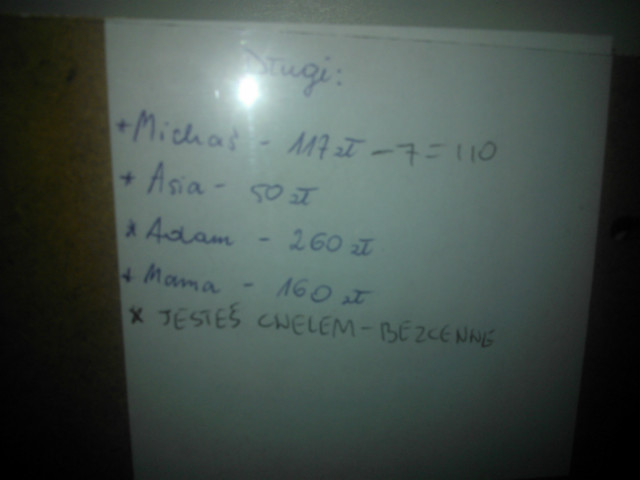 Długi:
* Michaś - 117 zł - 7 = 110
* Asia - 50 zł
* Adam - 260 zł
* Mama - 160 zł
* JESTEŚ CWELEM - BEZCENNE